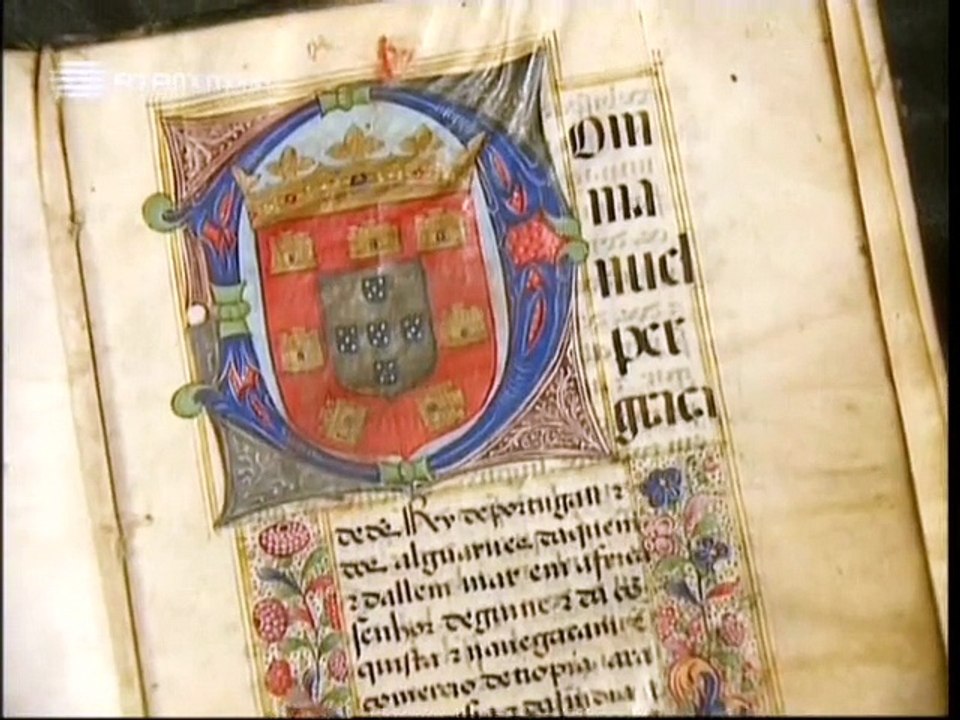 Om
ma
nuel
per
graça
de ds̃ Rey de portugall ⁊
dos alguarues daquem
⁊ dallem mar em africa
senhor de guine ⁊ da cõ
quista ⁊ nauegacam ⁊
comercio detiopia ara
⁊ da Jndia